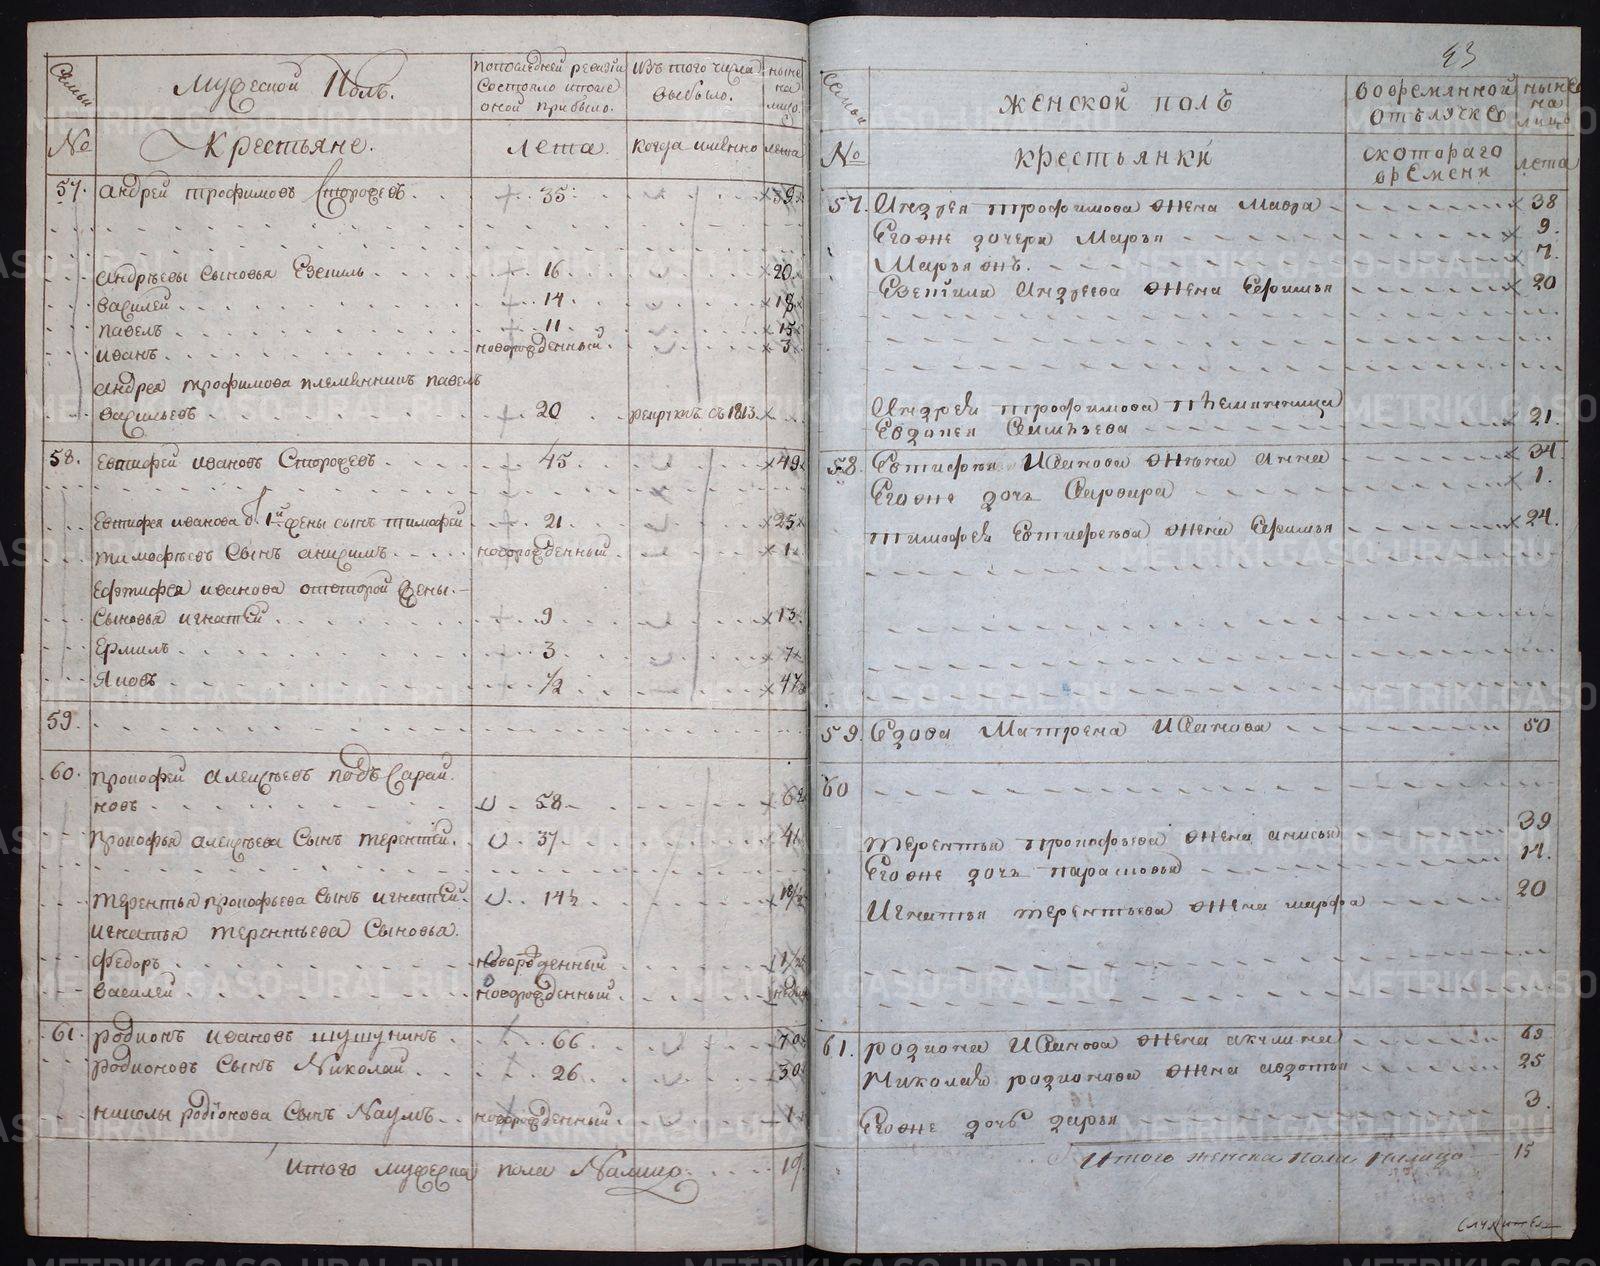 Семьи
Мужеской Полъ.
Попоследней ревизіи
Состояло ипосле
оной прибыло.
Изъ того числа
выбыло.
ныне
на
лицо
№
Крестьяне.
лета.
Когда имянно
лета
57. андрей трофимовъ Сторожевъ 35 39
андреевы сыновья Евсениъ 16 20
василей 14 18
павелъ 11 15
иванъ новорожденный 3
андрея трофимова племянникъ павелъ
васильевъ 20 рекрутъ съ 1813
58. Евтифей ивановъ Сторожевъ 45 49
Евтифея иванова от 1й жены сынъ тимофей 21 25
тимофеевъ Сынъ анисимъ новорожденный 1
Ефтифея иванова отвторой жены
Сыновья игнатей 9 13
Ермилъ 3 7
Яковъ 1/2 4 1/2
59.
60. прокофей алексеевъ подъ Сарай
новъ 58 62
прокофья алексеева Сынъ терентей 37 41
терентья прокофьева Сынъ игнатей 14 1/2 18 1/2
игнатья терентьева Сыновья
федоръ новорожденный 1 1/2
василей новорожденный
61. родионъ ивановъ шушунинъ 66 70
родионовъ Сынъ Николай 26 30
николы родіонова Сынъ Наумъ новорожденный 1
Итого мужеска пола Налицо 19
43
Семьи
женской полъ
вовремянной
отълучке
ныне
на
лицо
№
крестьянки
скотораго
времени
лета
57. Андрея трофимова жена Мавра 38
Егоже дочери Марья 9.
Марья жъ. 7.
Андреева жена Ефимья 20
Андрея трофимова племянница
Евдокея 21.
58. Евтифея Иванова жена анна 34
Егоже дочь Варвара 1.
тимофея Евтифеева жена Ефимья 24.
59. Вдова Матрена Иванова 50
60
терентья прокофьева жена анисья 39
Егоже дочь парасковья 14.
Игнатья терентьева жена марфа 20
61. родиона Иванова жена акилина 63
Николая родионова жена авдотья 25
Егоже дочь дарья 3.
Итого женска пола налицо 15
METRIKI.GASO-URAL.RU